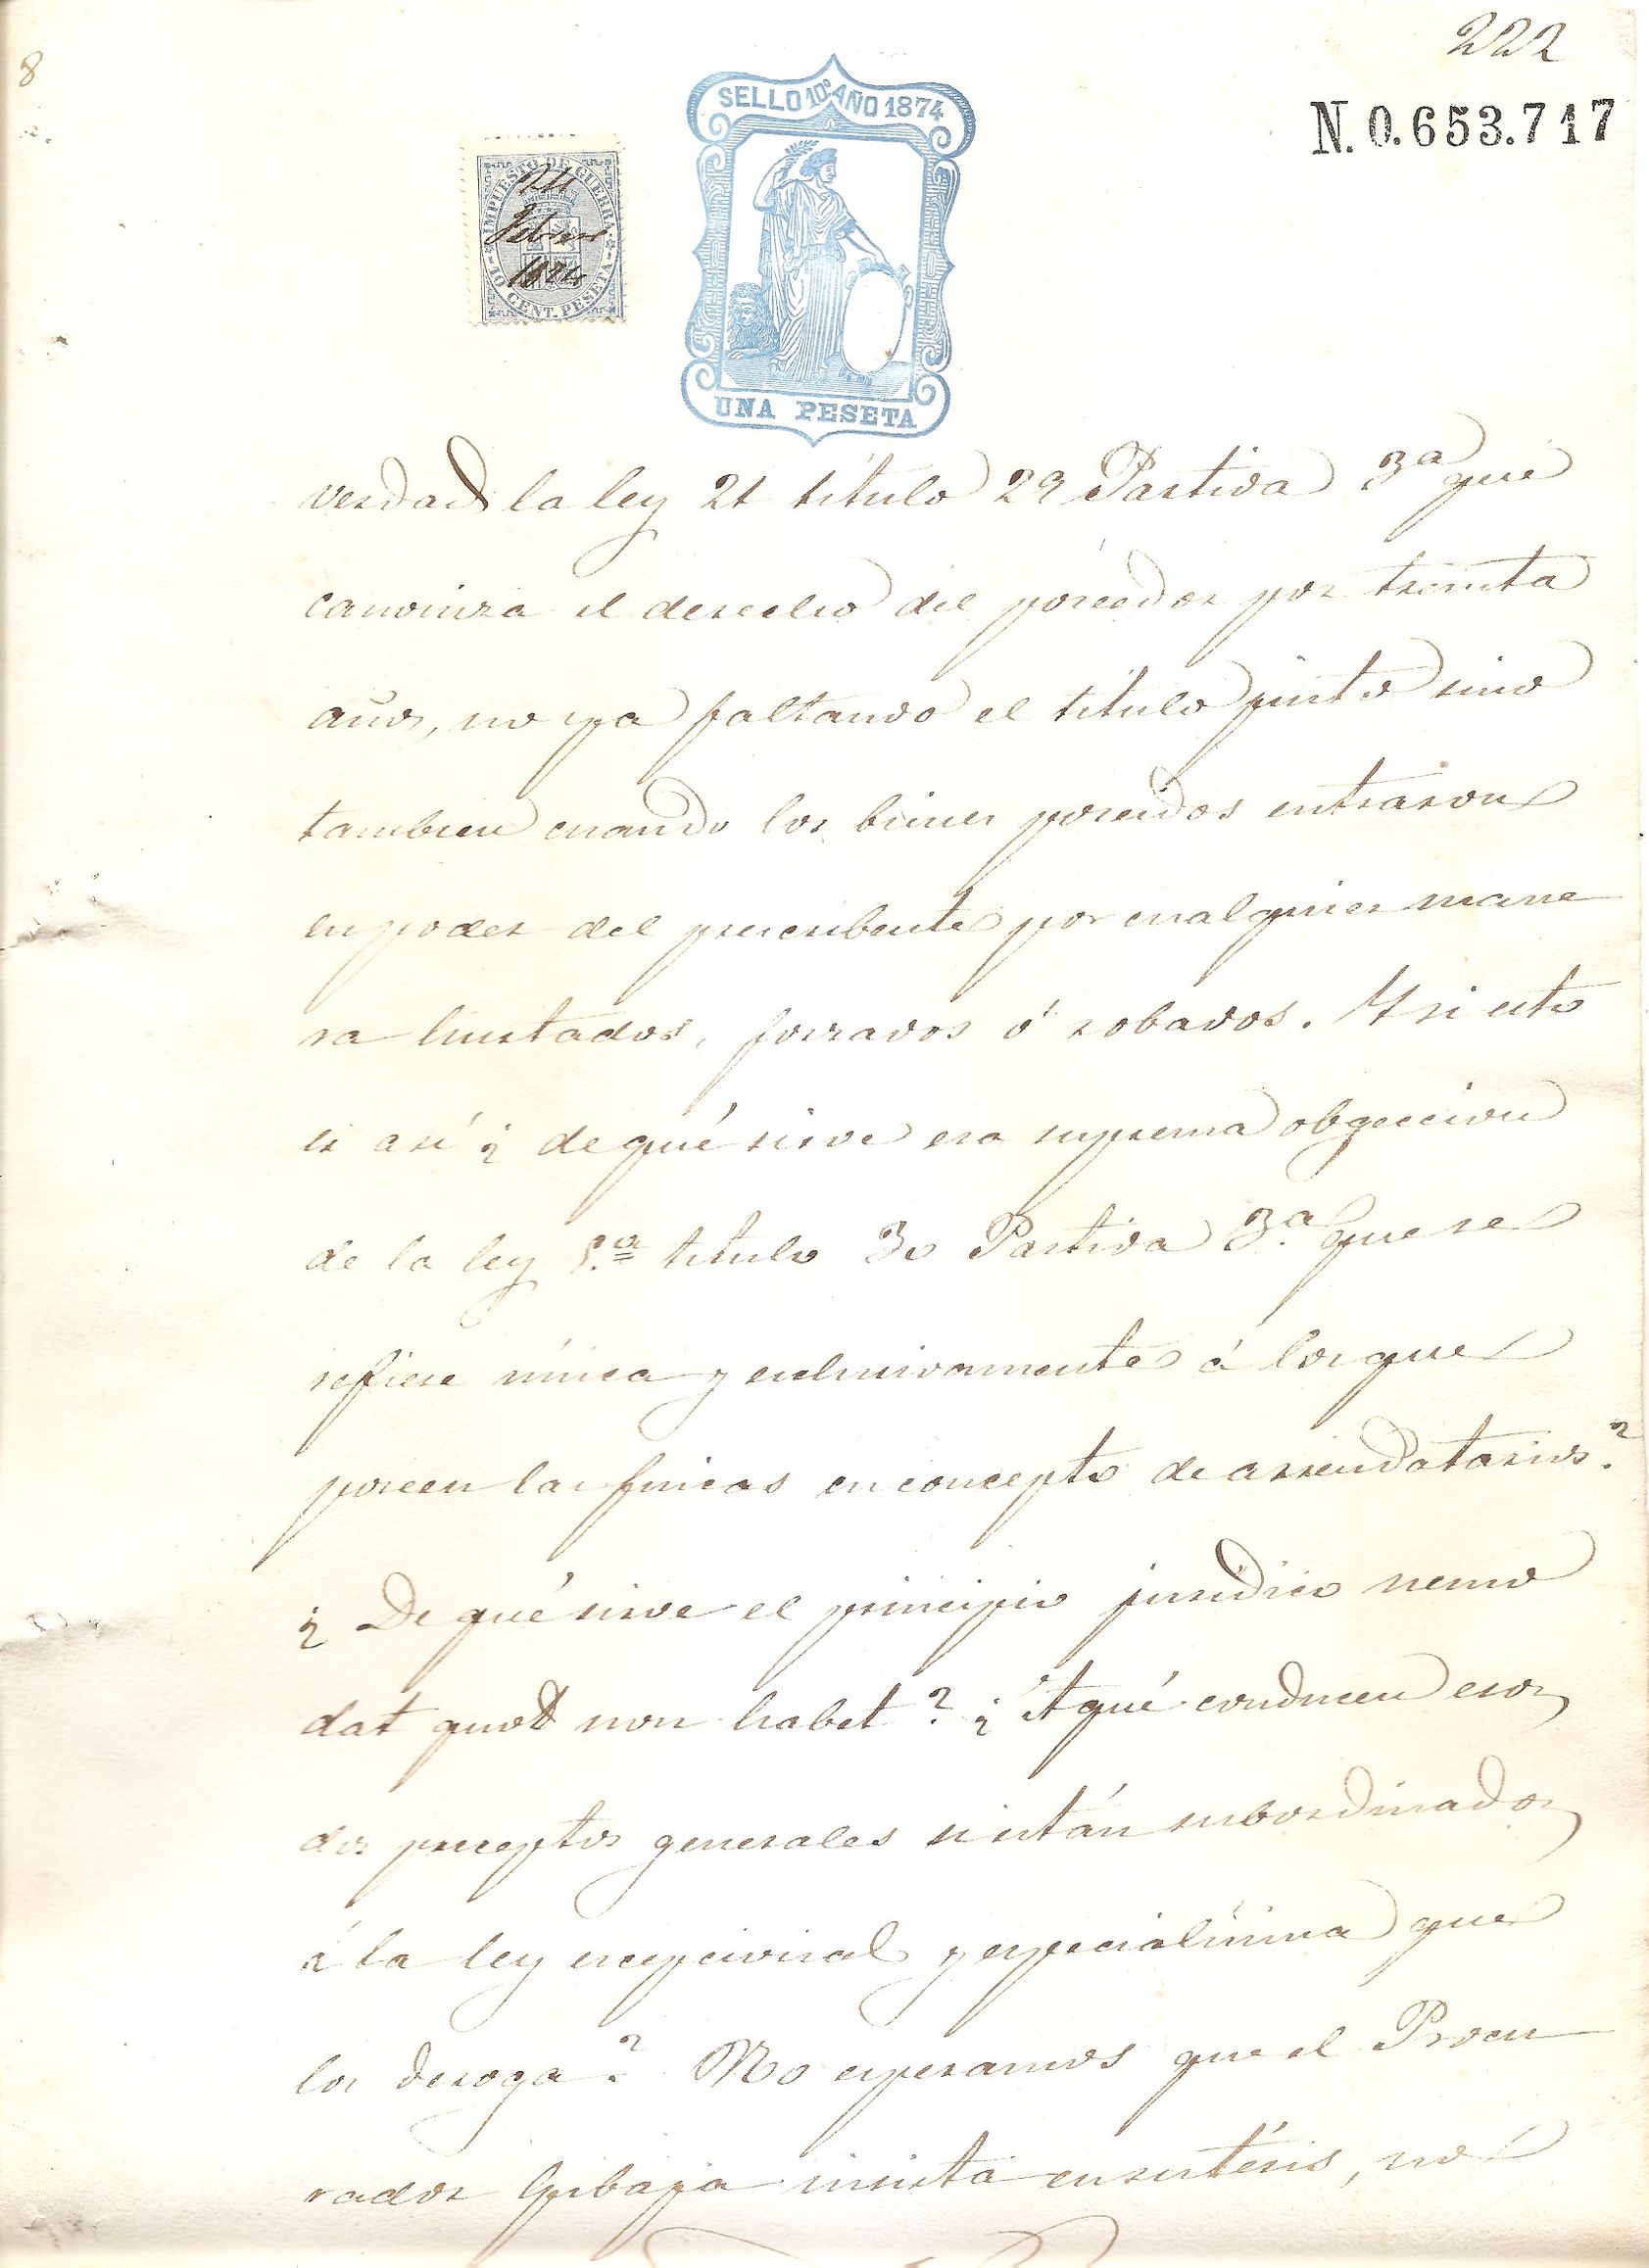 8
222
N. 0.653.717
SELLO 10º AÑO 1874
UNA PESETA
IMPUESTO DE GUERRA
10 CENT. PESETA
Febrero
1874
verdad la ley 21 título 29 Partida 3ª que
canoniza el derecho del poseedor por treinta
años, no ya faltando el título justo sino
tambien cuando los bienes poseidos entraron
en poder del prescribente por cualquier mane
ra hurtados, forzados ó robados. Y si esto
es así ¿ de qué sirve esa suprema obgeccion
de la ley 5.ª título 30 Partida 3.ª que se
refiere única y esclusivamente á los que
poseen las fincas en concepto de arrendatarios?
¿ De qué sirve el principio jurídico nemo
dat quod non habet? ¿ A qué conducen esos
dos preceptos generales si están subordinados
á la ley escepcional y especialísima que
los deroga? No esperamos que el Procu
rador Gibaja insista en su tésis, no